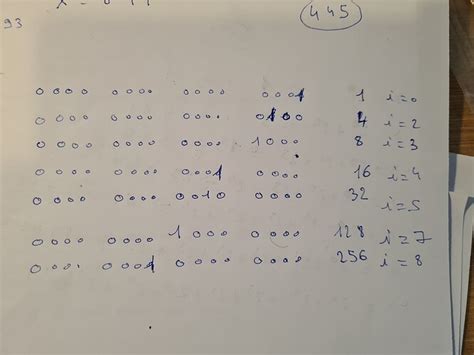 445
93
0000 0000 0000 0001 1 i=0
0000 0000 0000 0100 4 i=2
0000 0000 0000 1000 8 i=3
0000 0000 0001 0000 16 i=4
0000 0000 0010 0000 32 i=5
0000 0000 1000 0000 128 i=7
0000 0001 0000 0000 256 i=8